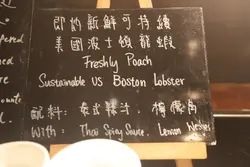 即灼新鮮可持續
美國波士頓龍蝦
Freshly Poach
Sustainable US Boston Lobster
配料: 泰式辣汁, 檸檬角
With: Thai Spicy Sauce, Lemon Wedges